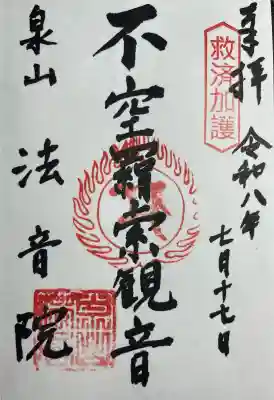 奉拝
救済加護
令和八年
七月十七日
不空羂索観音
泉山
法音院